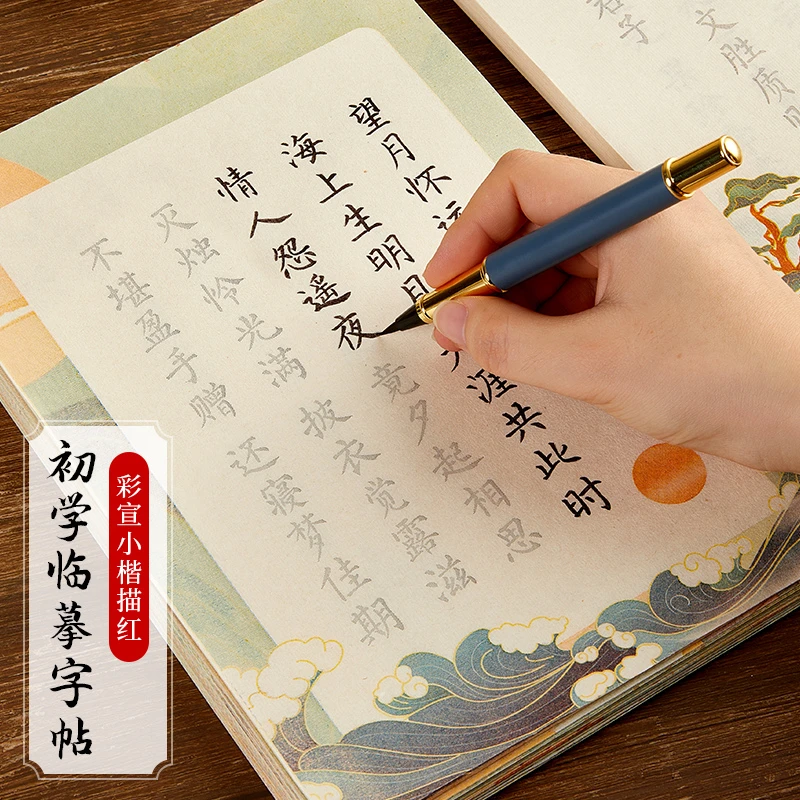 文胜质
君子
望月怀远
海上生明月 天涯共此时
情人怨遥夜 竟夕起相思
灭烛怜光满 披衣觉露滋
不堪盈手赠 还寝梦佳期
彩宣小楷描红
初学临摹字帖